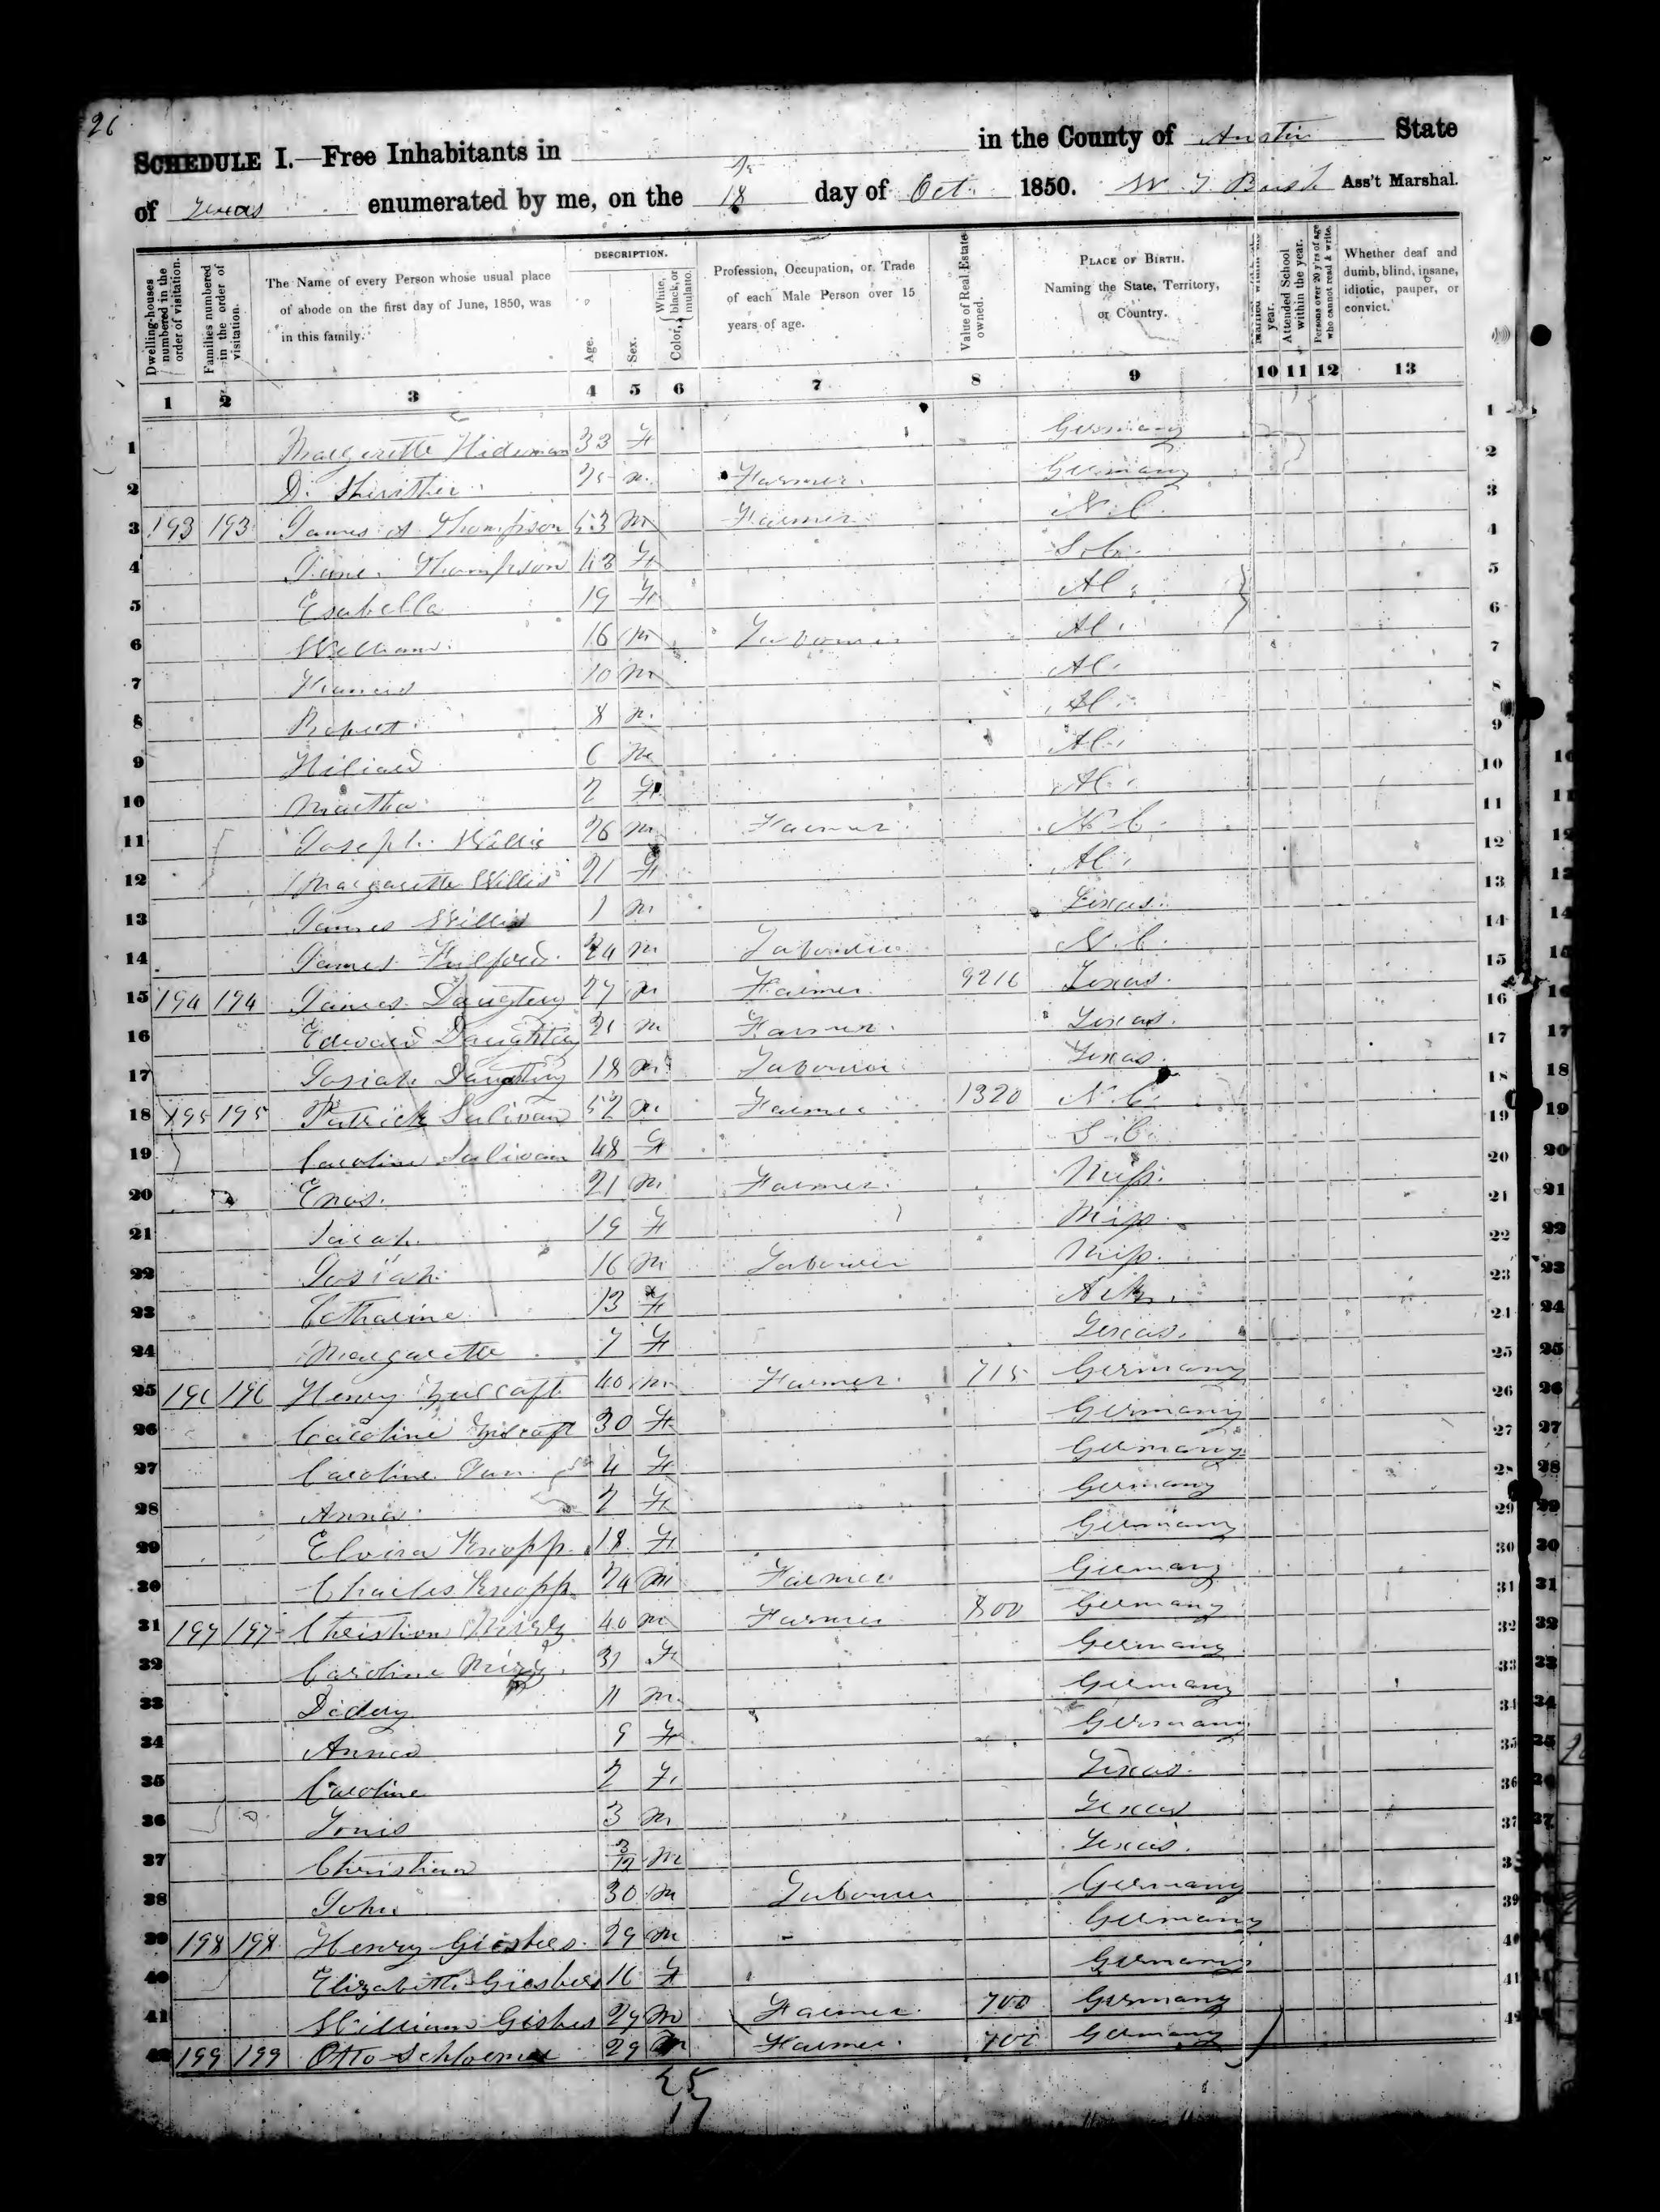 26
SCHEDULE I.—Free Inhabitants in in the County of Austin State
of Texas enumerated by me, on the 18 day of Oct. 1850. W. T. Bush Ass't Marshal.
Dwelling-houses numbered in the order of visitation. Families numbered in the order of visitation. The Name of every Person whose usual place of abode on the first day of June, 1850, was in this family. DESCRIPTION. Age. Sex. Color, White, black, or mulatto. Profession, Occupation, or Trade of each Male Person over 15 years of age. Value of Real Estate owned. PLACE OF BIRTH. Naming the State, Territory, or Country. Married within the year. Attended School within the year. Persons over 20 y'rs of age who cannot read & write. Whether deaf and dumb, blind, insane, idiotic, pauper, or convict.
1 2 3 4 5 6 7 8 9 10 11 12 13
1 33 F Germany 1
2 D. 25 m Farmer. Germany 2
3 193 193 James A Thompson 53 m Farmer N.C. 3
4 Jane Thompson 43 F S.C. 4
5 Esabella 19 F Al. 5
6 William 16 m Labourer Al. 6
7 Francis 10 m Al. 7
8 Robert 8 m Al. 8
9 Hiliard 6 m Al. 9
10 Martha 2 F Al. 10
11 Joseph Willis 26 m Farmer N.C. 11
12 Margarette Willis 21 F Al. 12
13 James Willis 1 m Texas. 13
14 James 24 m Labourer N.C. 14
15 194 194 James Daughtery 27 m Farmer 9216 Texas. 15
16 Edward Daughtery 21 m Farmer. Texas. 16
17 Josiah Daughtery 18 m Labourer Texas. 17
18 195 195 Patrick Sulivan 52 m Farmer 1320 N.C. 18
19 Caroline Sulivan 48 F S.C. 19
20 Enos. 21 m Farmer. Miss. 20
21 Sarah 19 F Miss. 21
22 Josiah 16 m Labourer Miss. 22
23 Catharine 13 F Ark. 23
24 Margarette 7 F Texas. 24
25 196 196 Henry 40 m Farmer. 715 Germany 25
26 Caroline 30 F Germany 26
27 Caroline 4 F Germany 27
28 Anna 2 F Germany 28
29 Elvira Knopp 18 F Germany 29
30 Charles Knopp 24 m Farmer Germany 30
31 197 197 Christian 40 m Farmer 800 Germany 31
32 Caroline 31 F Germany 32
33 Didery 11 m Germany 33
34 Anna 9 F Germany 34
35 Caroline 7 F Texas. 35
36 Louis 3 m Texas 36
37 Christian 3/12 m Texas. 37
38 John 30 m Labourer Germany 38
39 198 198 Henry Giesbers 29 m - Germany 39
40 Elizabeth Giesbers 16 F Germany 40
41 William Gisbers 27 m Farmer. 700 Germany 41
42 199 199 Otto Schloemer 29 m Farmer. 700 Germany 42
25
17